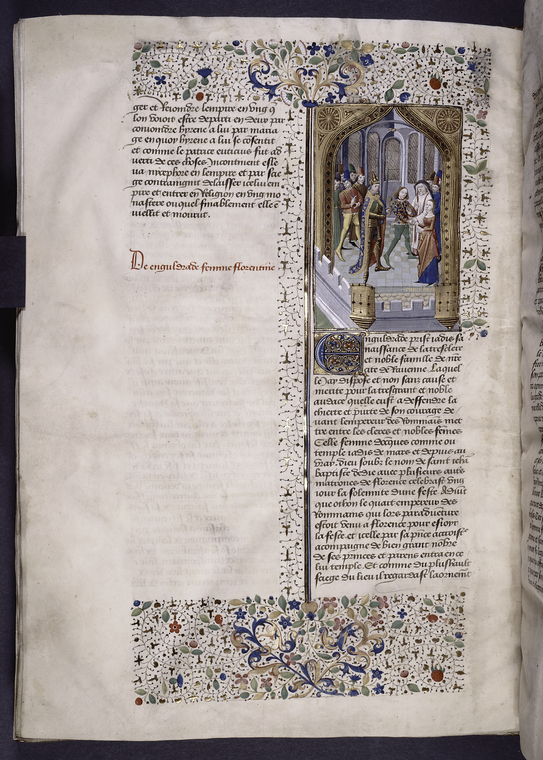 ger et reioindre lempire en ung q
lon vouoit estre departi en deux par
conioindre hyrene a lui par maria
ge en quoy hyrene a lui se cosentit
et comme le patrice euticius fut ad
verti de ces choses Incontinent esle
va nycephore en lempire et par sie
ge contraingnit delaisser icellui em
pire et entrer en religion en ung mo
nastere ouquel finablement elle e
viellit et mourut.
De enguldrade femme florentine
Enguldrade prist iadis sa
naissance de la tresclere
et noble famille de
cite de Ravenne Laquel
le Jay dispose et non sans cause et
merite pour la tresgrant et noble
audace quelle eust a deffendre la
chierte et purte de son courage de
vant lempereur des Rommains met
tre entre les cleres et nobles femes
Celle femme decques comme ou
temple iadis de mars et depuis au
vray dieu soubz le nom de saint Jehan
baptiste dedie avec plusieurs autres
matrones de florence celebrast ung
iour la solemnite dune feste Advint
que othon le quart empereur des
Rommains qui lors par adventure
estoit venu a florence pour esioyr
la feste et icelle par sa presence accroistre
acompaigne de bien grant nobre
de ses princes et parens entra en ce
lui temple Et comme du plus hault
siege du lieu il regardast laornement